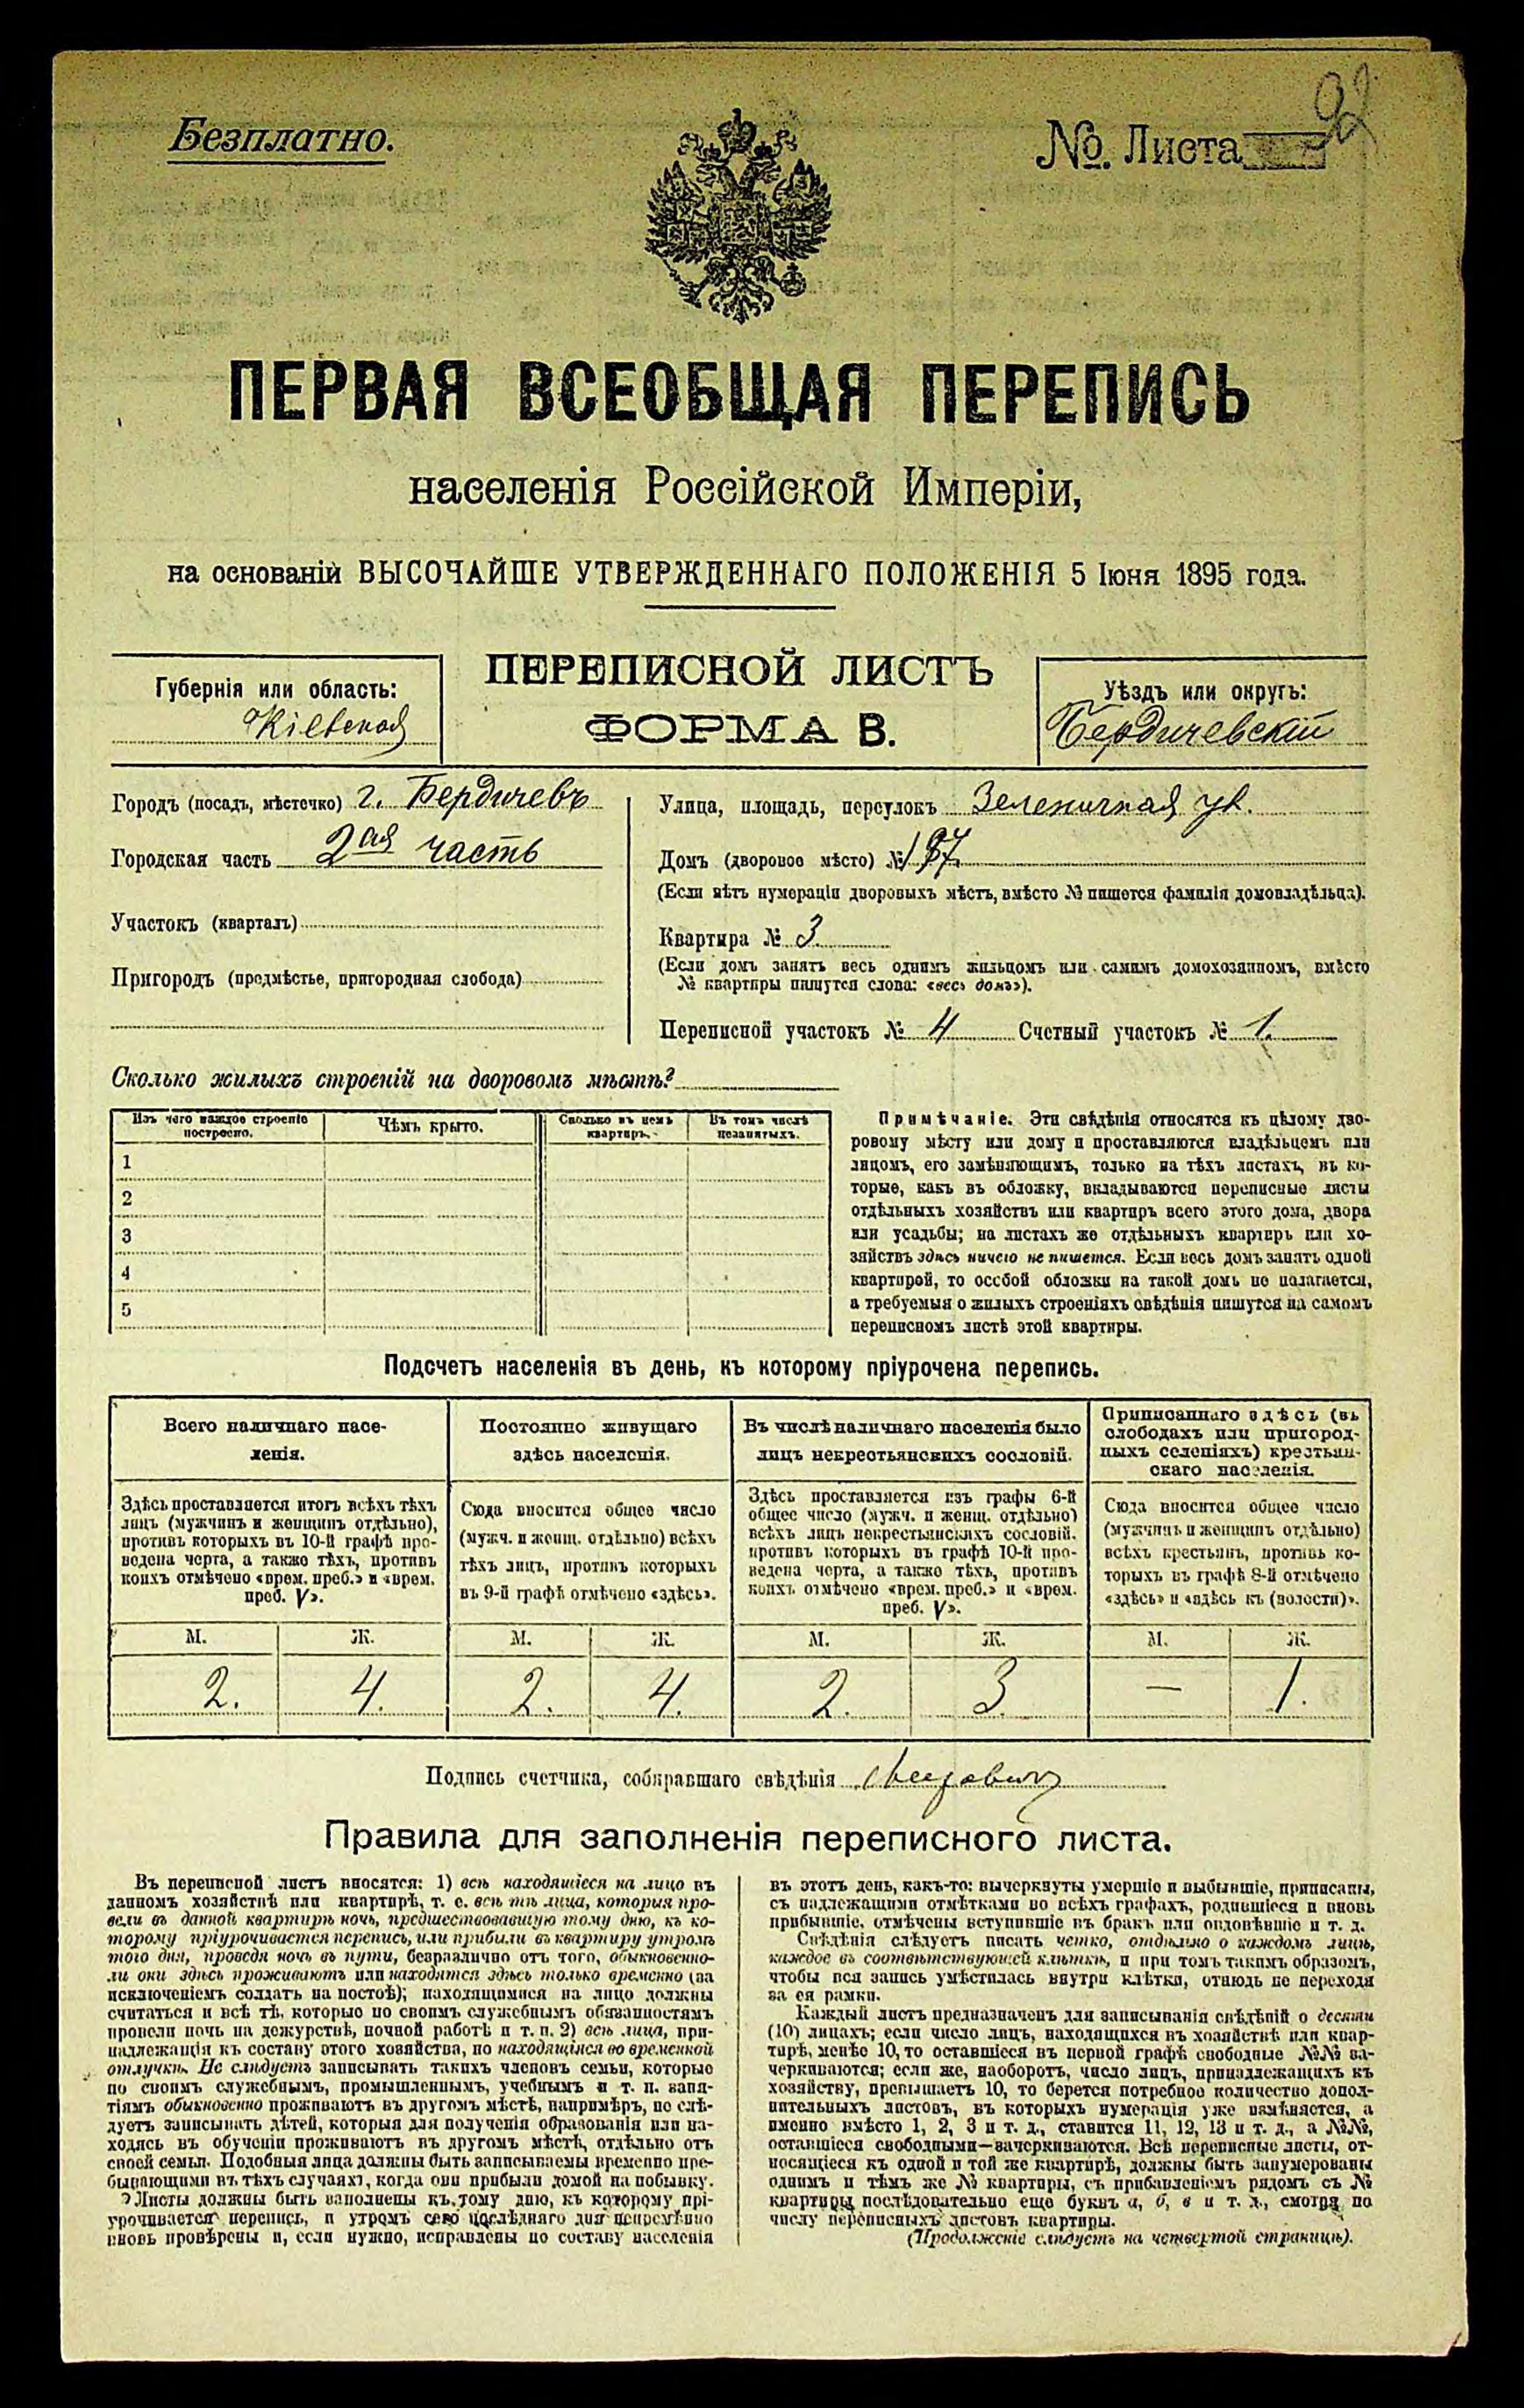 Безплатно.
№. Листа 92
ПЕРВАЯ ВСЕОБЩАЯ ПЕРЕПИСЬ
населенія Россійской Имперіи,
на основаніи ВЫСОЧАЙШЕ УТВЕРЖДЕННАГО ПОЛОЖЕНІЯ 5 Іюня 1895 года.
ПЕРЕПИСНОЙ ЛИСТЪ
ФОРМА В.
Губернія или область:
Кіевская
Уѣздъ или округъ:
Бердичевскій
Городъ (посадъ, мѣстечко) г. Бердичевъ
Городская часть 2ая часть
Участокъ (кварталъ)
Пригородъ (предмѣстье, пригородная слобода)
Улица, площадь, переулокъ ул.
Домъ (дворовое мѣсто) №
(Если нѣтъ нумераціи дворовыхъ мѣстъ, вмѣсто № пишется фамилія домовладѣльца).
Квартира № 3
(Если домъ занятъ весь однимъ жильцомъ или самимъ домохозяиномъ, вмѣсто
№ квартиры пишутся слова: «весь домъ»).
Переписной участокъ № 4 Счетный участокъ № 1.
Сколько жилыхъ строеній на дворовомъ мѣстѣ?
Изъ чего каждое строеніе построено.
Чѣмъ крыто.
Сколько въ немъ квартиръ.
Въ томъ числѣ незанятыхъ.
1
2
3
4
5
Примѣчаніе. Эти свѣдѣнія относятся къ цѣлому дво-
ровому мѣсту или дому и проставляются владѣльцемъ или
лицомъ, его замѣняющимъ, только на тѣхъ листахъ, въ ко-
торые, какъ въ обложку, вкладываются переписные листы
отдѣльныхъ хозяйствъ или квартиръ всего этого дома, двора
или усадьбы; на листахъ же отдѣльныхъ квартиръ или хо-
зяйствъ здѣсь ничего не пишется. Если весь домъ занятъ одной
квартирой, то особой обложки на такой домъ не полагается,
а требуемыя о жилыхъ строеніяхъ свѣдѣнія пишутся на самомъ
переписномъ листѣ этой квартиры.
Подсчетъ населенія въ день, къ которому пріурочена перепись.
Всего наличнаго насе-
ленія.
Здѣсь проставляется итогъ всѣхъ тѣхъ
лицъ (мужчинъ и женщинъ отдѣльно),
противъ которыхъ въ 10-й графѣ про-
ведена черта, а также тѣхъ, противъ
коихъ отмѣчено «врем. преб.» и «врем.
преб. V».
Постоянно живущаго
здѣсь населенія.
Сюда вносится общее число
(мужч. и женщ. отдѣльно) всѣхъ
тѣхъ лицъ, противъ которыхъ
въ 9-й графѣ отмѣчено «здѣсь».
Въ числѣ наличнаго населенія было
лицъ некрестьянскихъ сословій.
Здѣсь проставляется изъ графы 6-й
общее число (мужч. и женщ. отдѣльно)
всѣхъ лицъ некрестьянскихъ сословій,
противъ которыхъ въ графѣ 10-й про-
ведена черта, а также тѣхъ, противъ
коихъ отмѣчено «врем. преб.» и «врем.
преб. V».
Приписаннаго здѣсь (въ
слободахъ или пригород-
ныхъ селеніяхъ) крестьян-
скаго населенія.
Сюда вносится общее число
(мужчинъ и женщинъ отдѣльно)
всѣхъ крестьянъ, противъ ко-
торыхъ въ графѣ 8-й отмѣчено
«здѣсь» и «здѣсь къ (волости)».
М. Ж. М. Ж. М. Ж. М. Ж.
2. 4. 2. 4. 2. 3. — 1.
Подпись счетчика, собиравшаго свѣдѣнія
Правила для заполненія переписного листа.
Въ переписной листъ вносятся: 1) всѣ находящіеся на лицо въ
данномъ хозяйствѣ или квартирѣ, т. е. всѣ тѣ лица, которыя про-
вели въ данной квартирѣ ночь, предшествовавшую тому дню, къ ко-
торому пріурочивается перепись, или прибыли въ квартиру утромъ
того дня, проведя ночь въ пути, безразлично отъ того, обыкновенно-
ли они здѣсь проживаютъ или находятся здѣсь только временно (за
исключеніемъ солдатъ на постоѣ); находящимися на лицо должны
считаться и всѣ тѣ, которые по своимъ служебнымъ обязанностямъ
провели ночь на дежурствѣ, ночной работѣ и т. п. 2) всѣ лица, при-
надлежащія къ составу этого хозяйства, но находящіяся во временной
отлучкѣ. Не слѣдуетъ записывать такихъ членовъ семьи, которые
по своимъ служебнымъ, промышленнымъ, учебнымъ и т. п. заня-
тіямъ обыкновенно проживаютъ въ другомъ мѣстѣ, напримѣръ, не слѣ-
дуетъ записывать дѣтей, которыя для полученія образованія или на-
ходясь въ обученіи проживаютъ въ другомъ мѣстѣ, отдѣльно отъ
своей семьи. Подобныя лица должны быть записываемы временно пре-
бывающими въ тѣхъ случаяхъ, когда они прибыли домой на побывку.
Листы должны быть заполнены къ тому дню, къ которому прі-
урочивается перепись, и утромъ сего послѣдняго дня непремѣнно
вновь провѣрены и, если нужно, исправлены по составу населенія
въ этотъ день, какъ-то: вычеркнуты умершіе и выбывшіе, приписаны,
съ надлежащими отмѣтками во всѣхъ графахъ, родившіеся и вновь
прибывшіе, отмѣчены вступившіе въ бракъ или овдовѣвшіе и т. д.
Свѣдѣнія слѣдуетъ писать четко, отдѣльно о каждомъ лицѣ,
каждое въ соотвѣтствующей клѣткѣ, и при томъ такимъ образомъ,
чтобы вся запись умѣстилась внутри клѣтки, отнюдь не переходя
за ея рамки.
Каждый листъ предназначенъ для записыванія свѣдѣній о десяти
(10) лицахъ; если число лицъ, находящихся въ хозяйствѣ или квар-
тирѣ, менѣе 10, то оставшіеся въ первой графѣ свободные №№ за-
черкиваются; если же, наоборотъ, число лицъ, принадлежащихъ къ
хозяйству, превышаетъ 10, то берется потребное количество допол-
нительныхъ листовъ, въ которыхъ нумерація уже измѣняется, а
именно вмѣсто 1, 2, 3 и т. д., ставится 11, 12, 13 и т. д., а №№,
оставшіеся свободными—зачеркиваются. Всѣ переписные листы, от-
носящіеся къ одной и той же квартирѣ, должны быть занумерованы
однимъ и тѣмъ же № квартиры, съ прибавленіемъ рядомъ съ №
квартиры послѣдовательно еще буквъ а, б, в и т. д., смотря по
числу переписныхъ листовъ квартиры.
(Продолженіе слѣдуетъ на четвертой страницѣ).